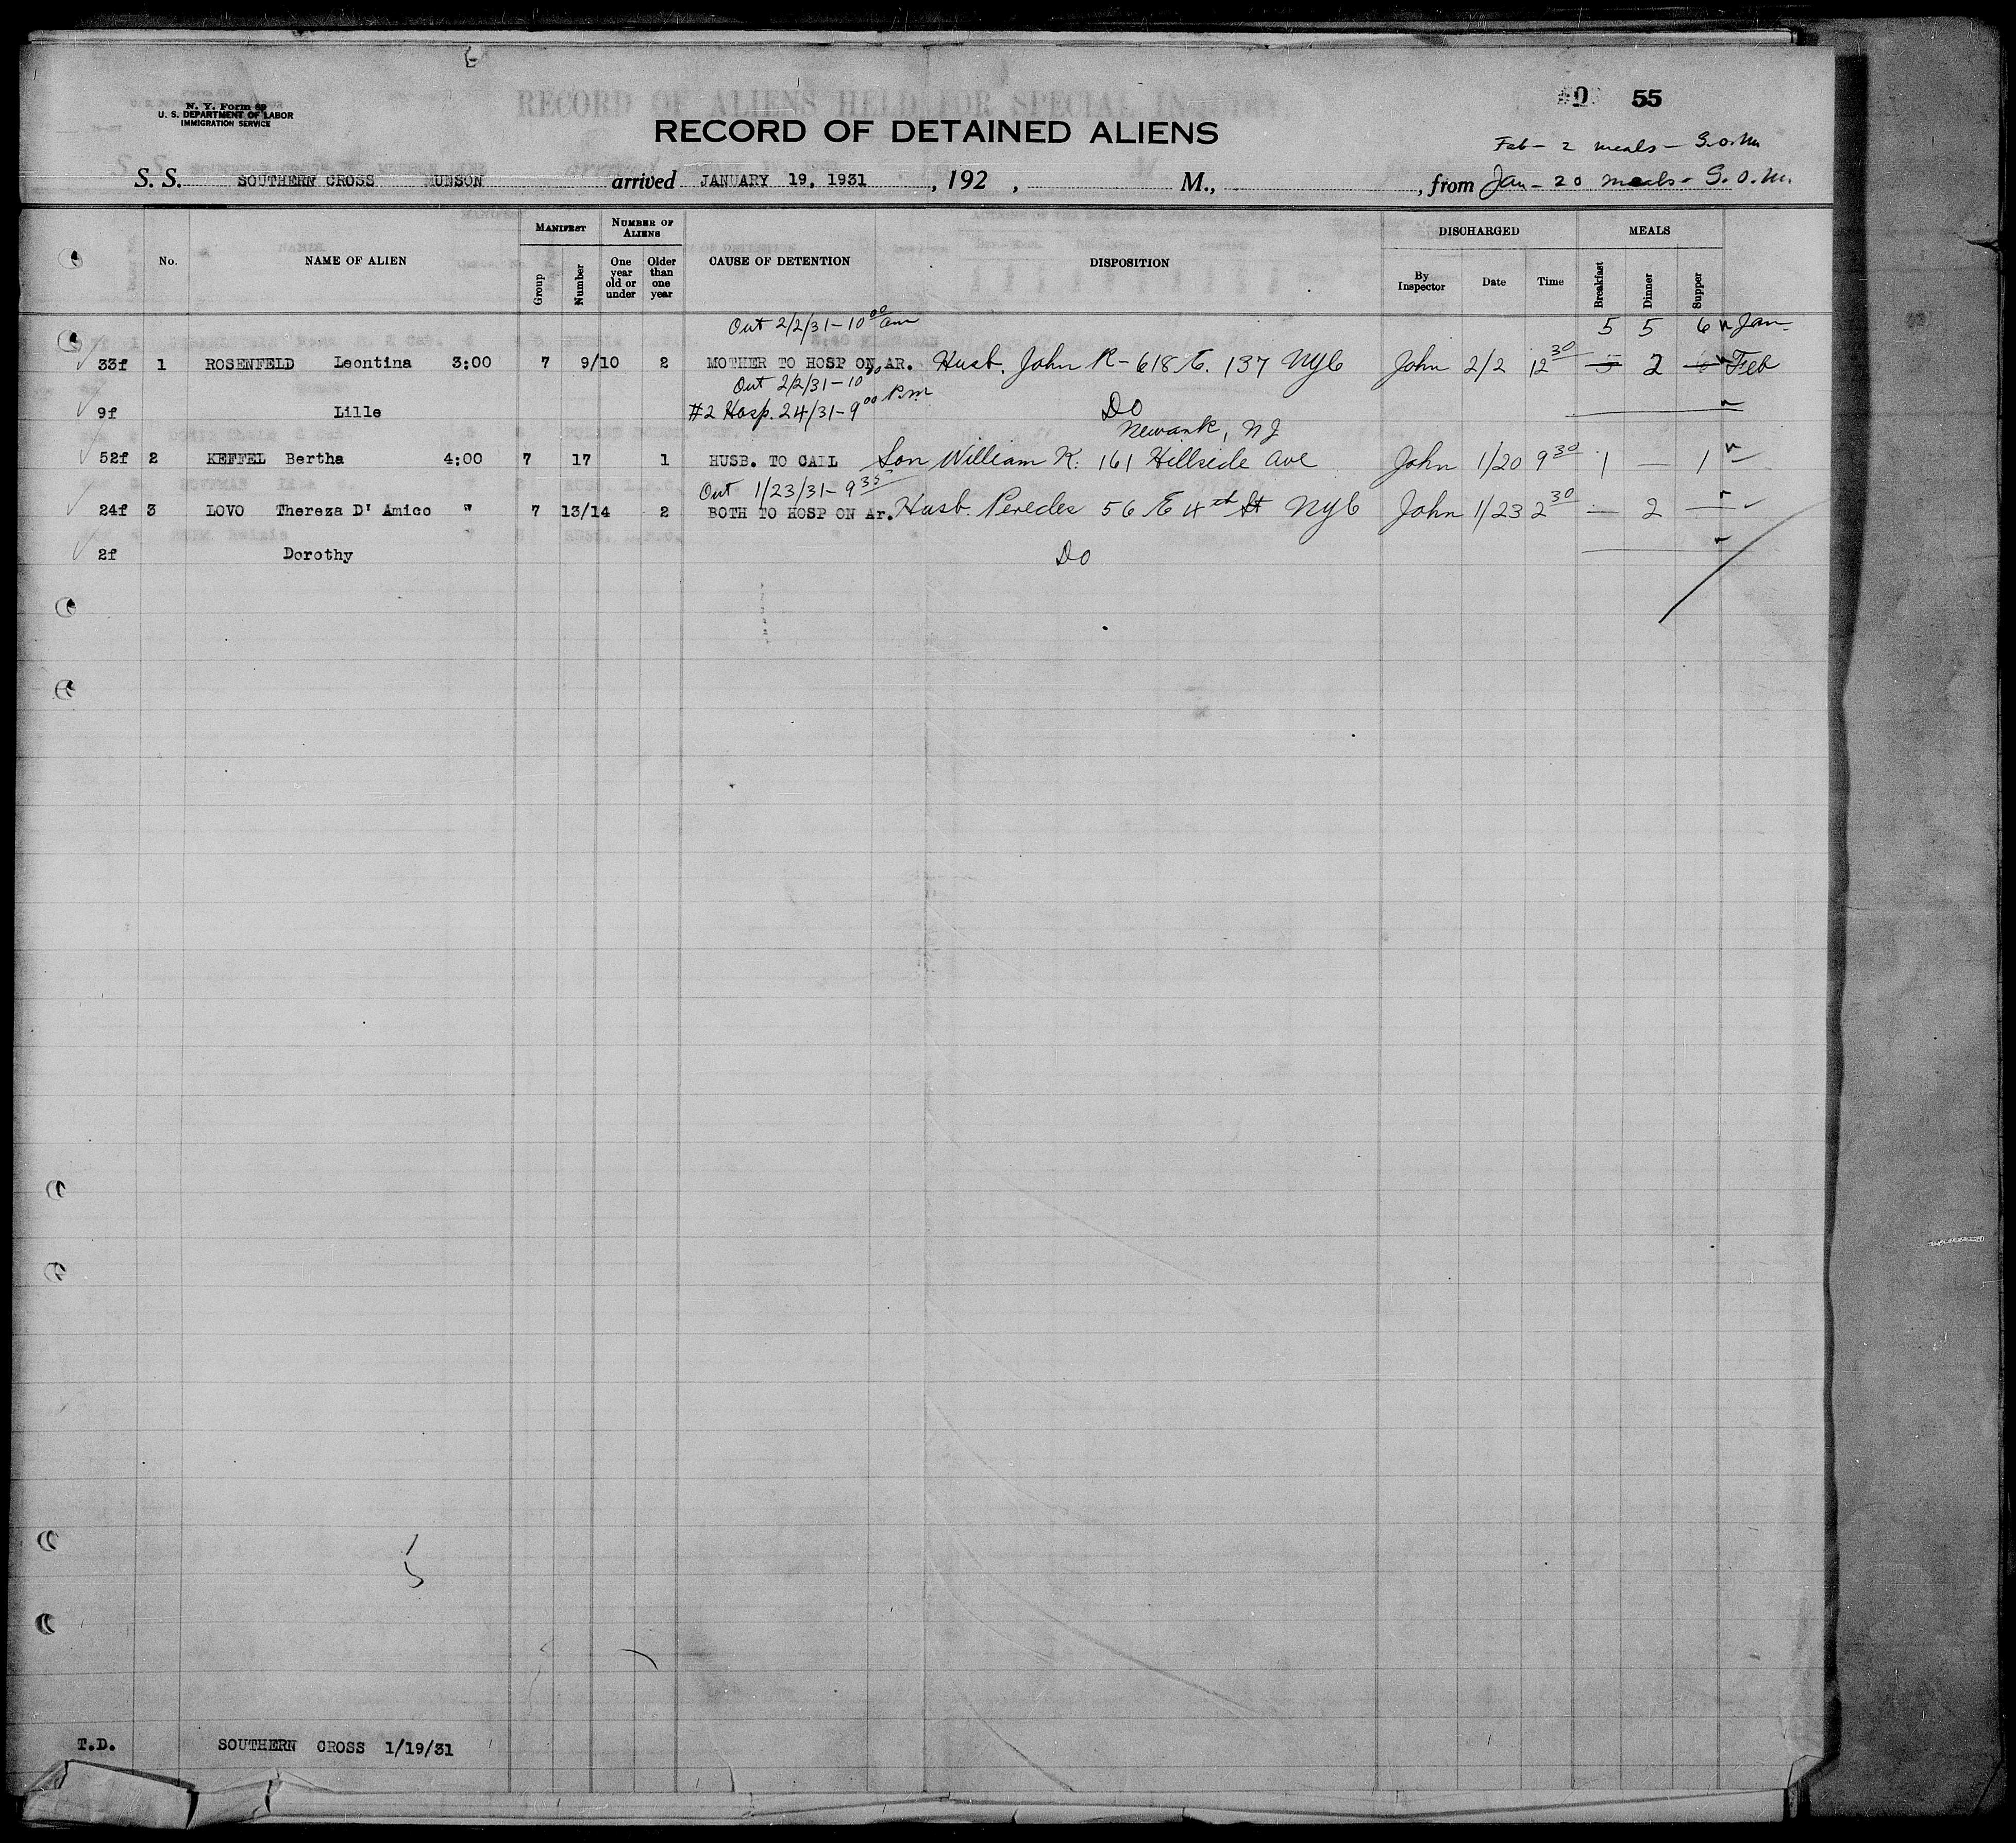 N. Y. Form 89
U. S. DEPARTMENT OF LABOR
IMMIGRATION SERVICE
55
RECORD OF DETAINED ALIENS
Feb - 2 meals - S.O.M.
S. S. SOUTHERN CROSS MUNSON arrived JANUARY 19, 1931, 192 , M., , from Jan - 20 meals - S.O.M.
MANIFEST NUMBER OF ALIENS DISCHARGED MEALS
No. NAME OF ALIEN Group Number One year old or under Older than one year CAUSE OF DETENTION DISPOSITION By Inspector Date Time Breakfast Dinner Supper
Out 2/2/31 - 10 00 am 5 5 6 Jan
33f 1 ROSENFELD Leontina 3:00 7 9/10 2 MOTHER TO HOSP ON AR. Husb. John R - 618 E. 137 NYC John 2/2 12 30 2 Feb
Out 2/2/31 - 10
9f Lille #2 Hosp. 24/31 - 9 00 P.m Do
Newark, NJ
52f 2 KEFFEL Bertha 4:00 7 17 1 HUSB. TO CALL Son William K. 161 Hillside Ave John 1/20 9 30 1 — 1
Out 1/23/31 - 9 35
24f 3 LOVO Thereza D' Amico " 7 13/14 2 BOTH TO HOSP ON Ar. Husb. Peredes 56 E 4th St NYC John 1/23 2 30 — 2 —
2f Dorothy Do
T.D. SOUTHERN CROSS 1/19/31